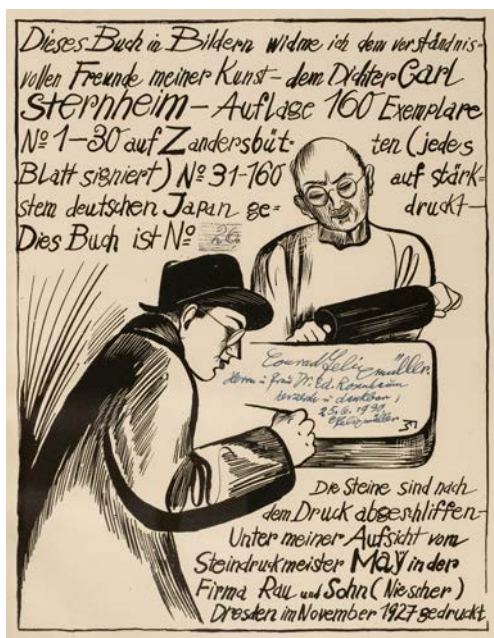 Dieses Buch in Bildern widme ich dem verständnis-
vollen Freunde meiner Kunst – dem Dichter Carl
Sternheim – Auflage 160 Exemplare
Nº 1–30 auf Zandersbüt- ten (jedes
Blatt signiert) Nº 31-160 auf stärk=
stem deutschen Japan ge= druckt –
Dies Buch ist Nº 26.
Conrad Felixmüller.
Herrn u Frau Dr. Ed. Rosenbaum
25.6.1930
CFelixmüller
Die Steine sind nach
dem Druck abgeshliffen–
Unter meiner Aufsicht vom
Steindruckmeister Maÿ in der
Firma Rau und Sohn (Niescher)
Dresden im November 1927 gedruckt